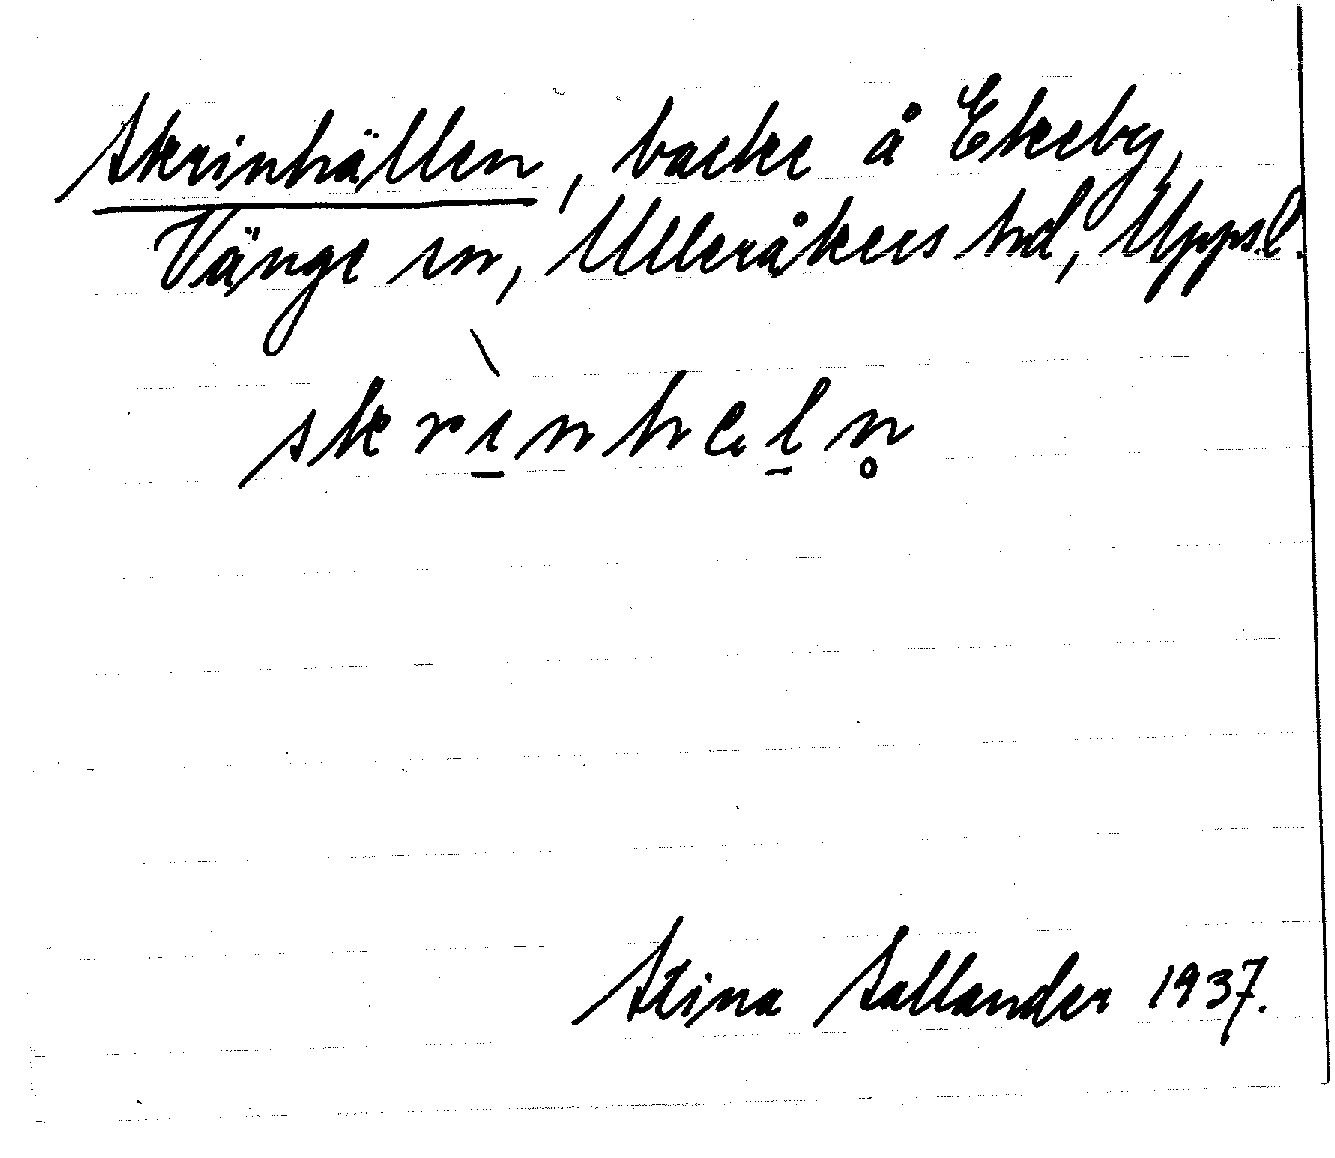 Skrinhällen, backe å Ekeby,
Vänge sn, Ulleråkers hd, Uppsl.
skrı̱̀nheḻn̥
Stina Sallander 1937.